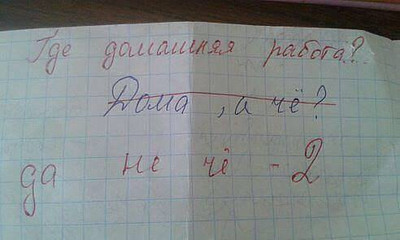 Где домашняя работа?
Дома, а чё?
да не чё - 2